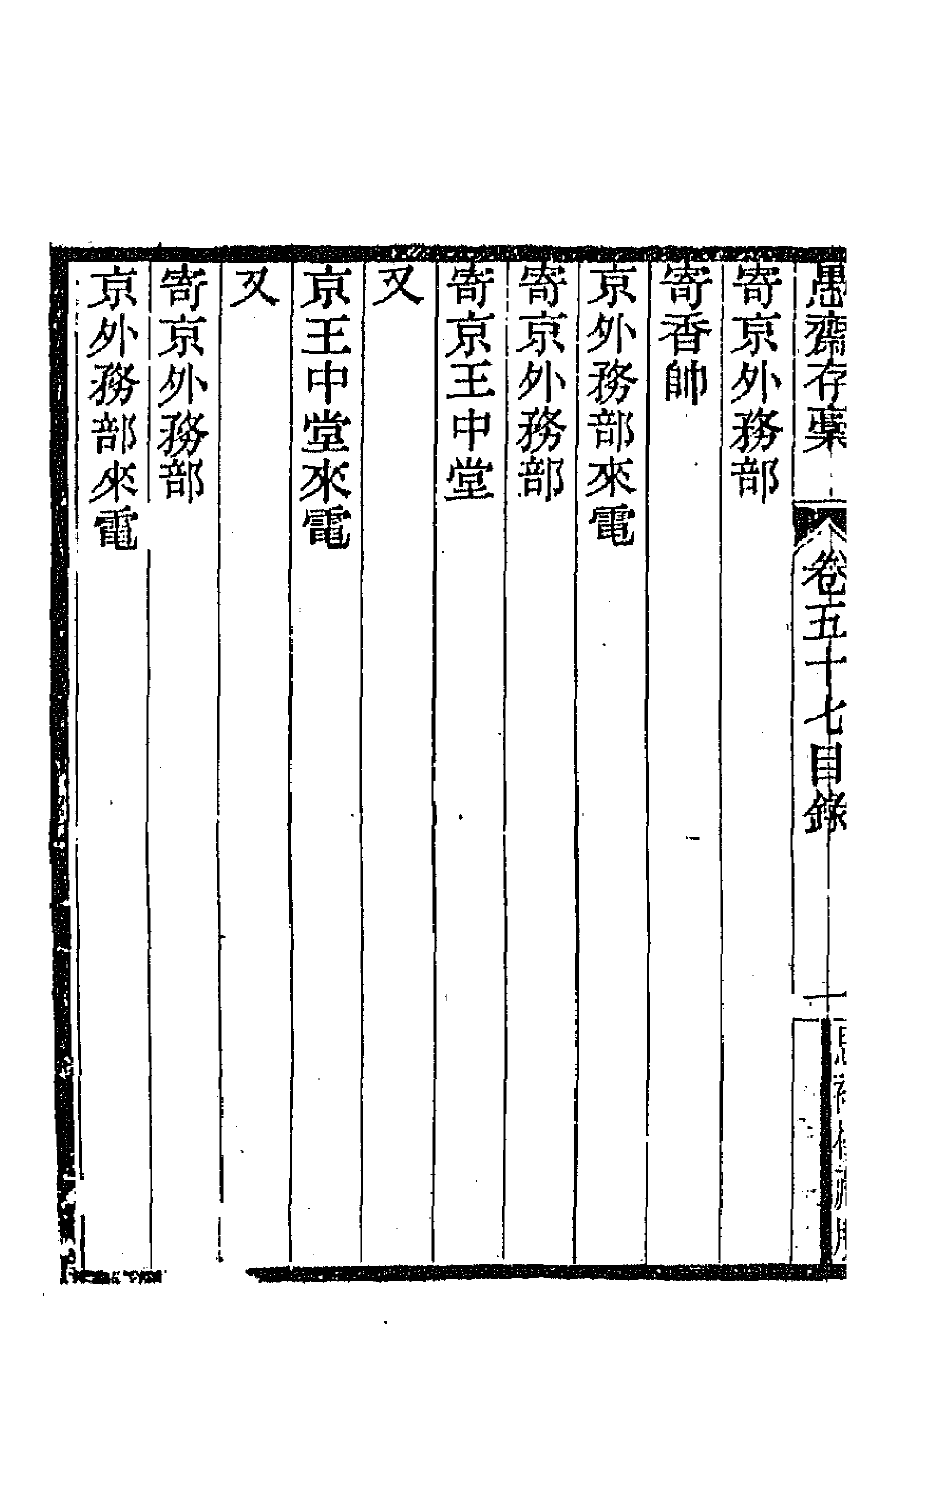 愚齋存藁
卷五十七目錄
一
寄京外務部
寄香帥
京外務部來電
寄京外務部
寄京王中堂
又
京王中堂來電
又
寄京外務部
京外務部來電